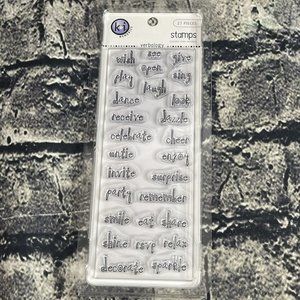 ki
27 PIECES
stamps
verbology
wish see give
open
play sing
laugh
dance look
receive dazzle
celebrate cheer
untie enjoy
invite surprise
party remember
smile eat share
shine rsvp relax
decorate sparkle